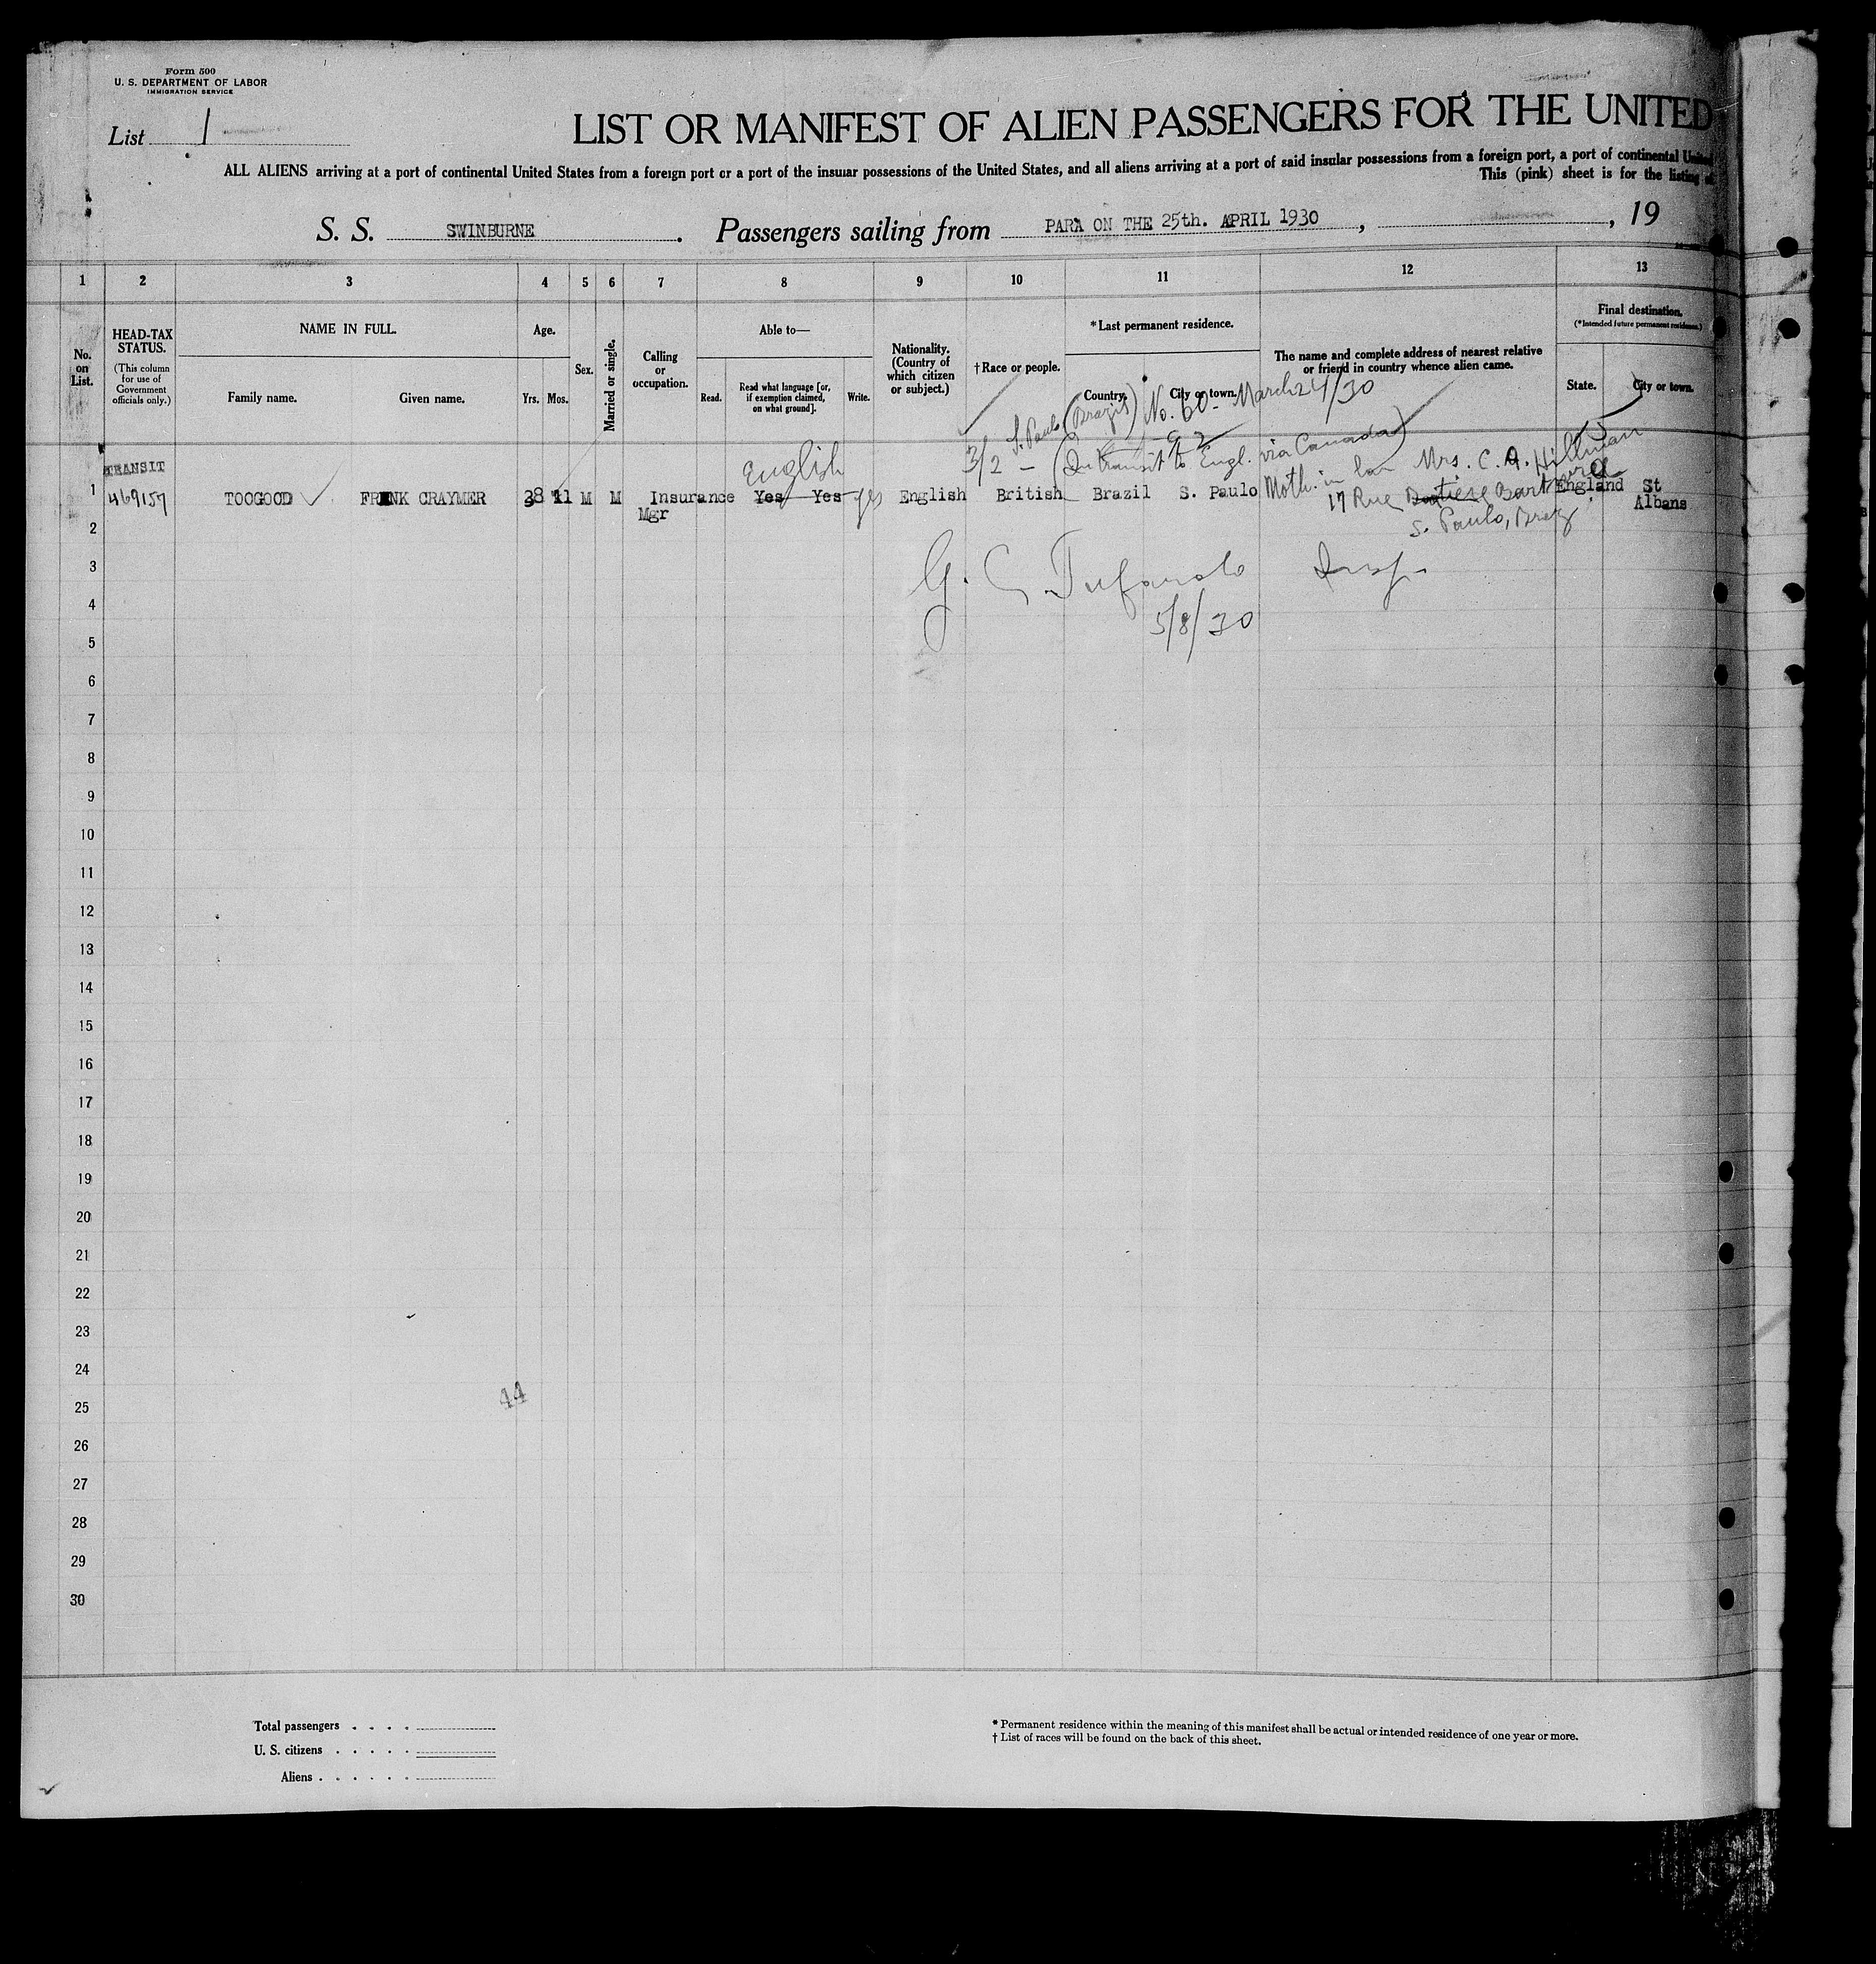 Form 500
U. S. DEPARTMENT OF LABOR
IMMIGRATION SERVICE
List 1
LIST OR MANIFEST OF ALIEN PASSENGERS FOR THE UNITED
ALL ALIENS arriving at a port of continental United States from a foreign port or a port of the insular possessions of the United States, and all aliens arriving at a port of said insular possessions from a foreign port, a port of continental United
This (pink) sheet is for the listing of
S. S. SWINBURNE. Passengers sailing from PARA ON THE 25th. APRIL 1930, , 19
1 2 3 4 5 6 7 8 9 10 11 12 13
No. on List.
HEAD-TAX STATUS.
(This column for use of Government officials only.)
NAME IN FULL.
Family name. Given name.
Age.
Yrs. Mos.
Sex.
Married or single.
Calling or occupation.
Able to—
Read. Read what language [or, if exemption claimed, on what ground]. Write.
Nationality. (Country of which citizen or subject.)
† Race or people.
*Last permanent residence.
Country. City or town.
The name and complete address of nearest relative or friend in country whence alien came.
Final destination.
(*Intended future permanent residence.)
State. City or town.
S. Paulo (Brazil) No. 60 - March 24/30
3/2 - (In transit to Engl. via Canada)
TRANSIT
English
Moth. in law Mrs. C. A. Hillman
1 469157 TOOGOOD FRANK CRAYMER 38 11 M M Insurance Mgr Yes Yes yes English British Brazil S. Paulo England St Albans
17 Rue
S. Paulo, Braz
2
3
G. C. Insp.
4
5
5/8/30
6
7
8
9
10
11
12
13
14
15
16
17
18
19
20
21
22
23
24
25
44
26
27
28
29
30
Total passengers . . . .
U. S. citizens . . . . .
Aliens . . . . . .
* Permanent residence within the meaning of this manifest shall be actual or intended residence of one year or more.
† List of races will be found on the back of this sheet.